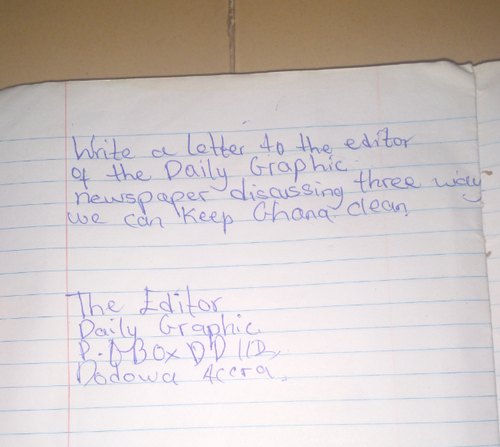 Write a letter to the editor
of the Daily Graphic
newspaper discussing three way
we can Keep Ghana clean.
The Editor
Daily Graphic
P.O Box DD
Dodowa Accra,